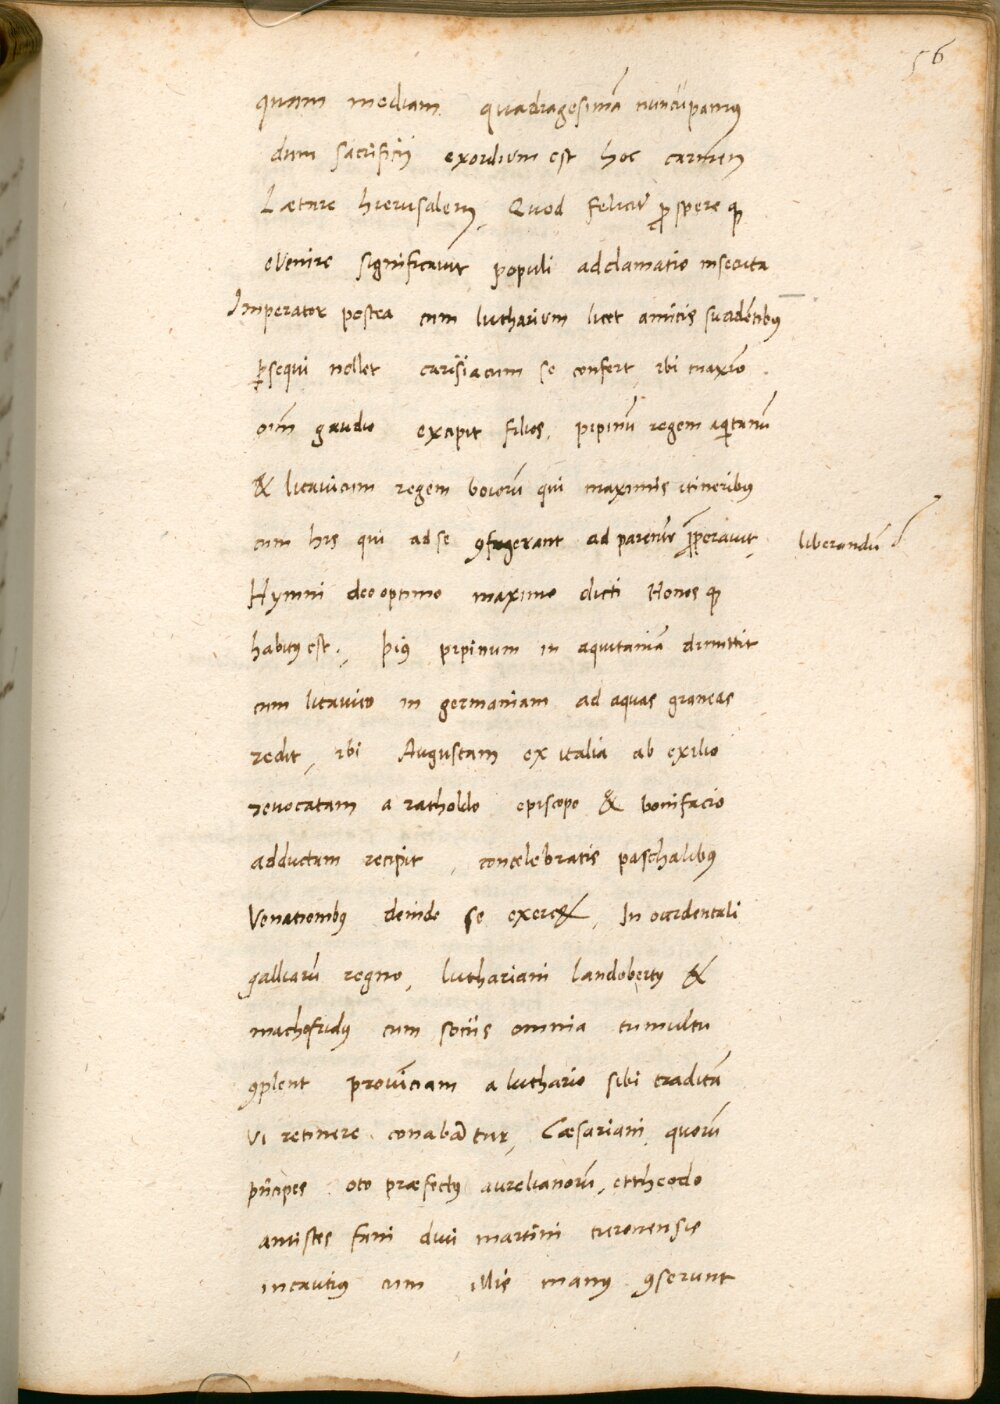 56
quam mediam quadragesimā nuncupamus
dum sacrificij exordium est hoc carmen
Lætare hierusalem, Quod feliciť ꝓspere qꝫ
evenire significavit populi adclamatio insecuta
Imperator postea cum lutharium licet amicis suadētibus
ꝑsequi nollet carisiacum se confert ibi maxīo
oīm gaudio excipit filios, pipinū regem aqͥtanū
& litavicum regem boiorū qui maximis itineribus
cum his qui ad se ꝯfugerant ad parentē ꝓperavit, liberandū
Hymni deo optimo maximo dicti Honos qꝫ
habitꝰ est., Piꝰ pipinum in aquitaniā dimittit
cum litavico in germaniam ad aquas graneas
redit, ibi Augustam ex italia ab exilio
revocatam a ratholdo episcopo & bonifacio
adductam recipit, concelebratis paschalibꝰ
Venationibꝰ deinde se exercet, In occidentali
galliarū regno, luthariani landobertꝰ &
machofridꝰ cum sociis omnia tumultu
ꝯplent provīciam a luthario sibi traditā
vi retinere conabātur, Cæsariani quorū
pͥncipes oto præfectꝰ aurelianorū, et theodo
antistes fani divi martini turonensis
incautiꝰ cum illis manꝰ ꝯserunt